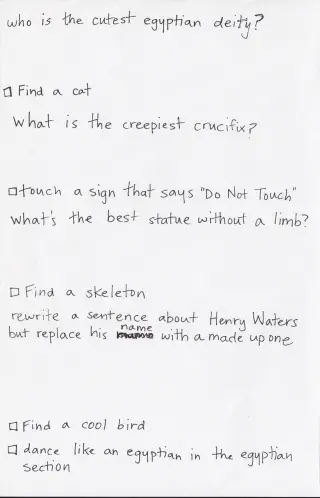 who is the cutest egyptian deity?
☐ Find a cat
What is the creepiest crucifix?
☐ touch a sign that says "Do Not Touch"
what's the best statue without a limb?
☐ Find a skeleton
rewrite a sentence about Henry Waters
but replace his name with a made up one
☐ Find a cool bird
☐ dance like an egyptian in the egyptian
section